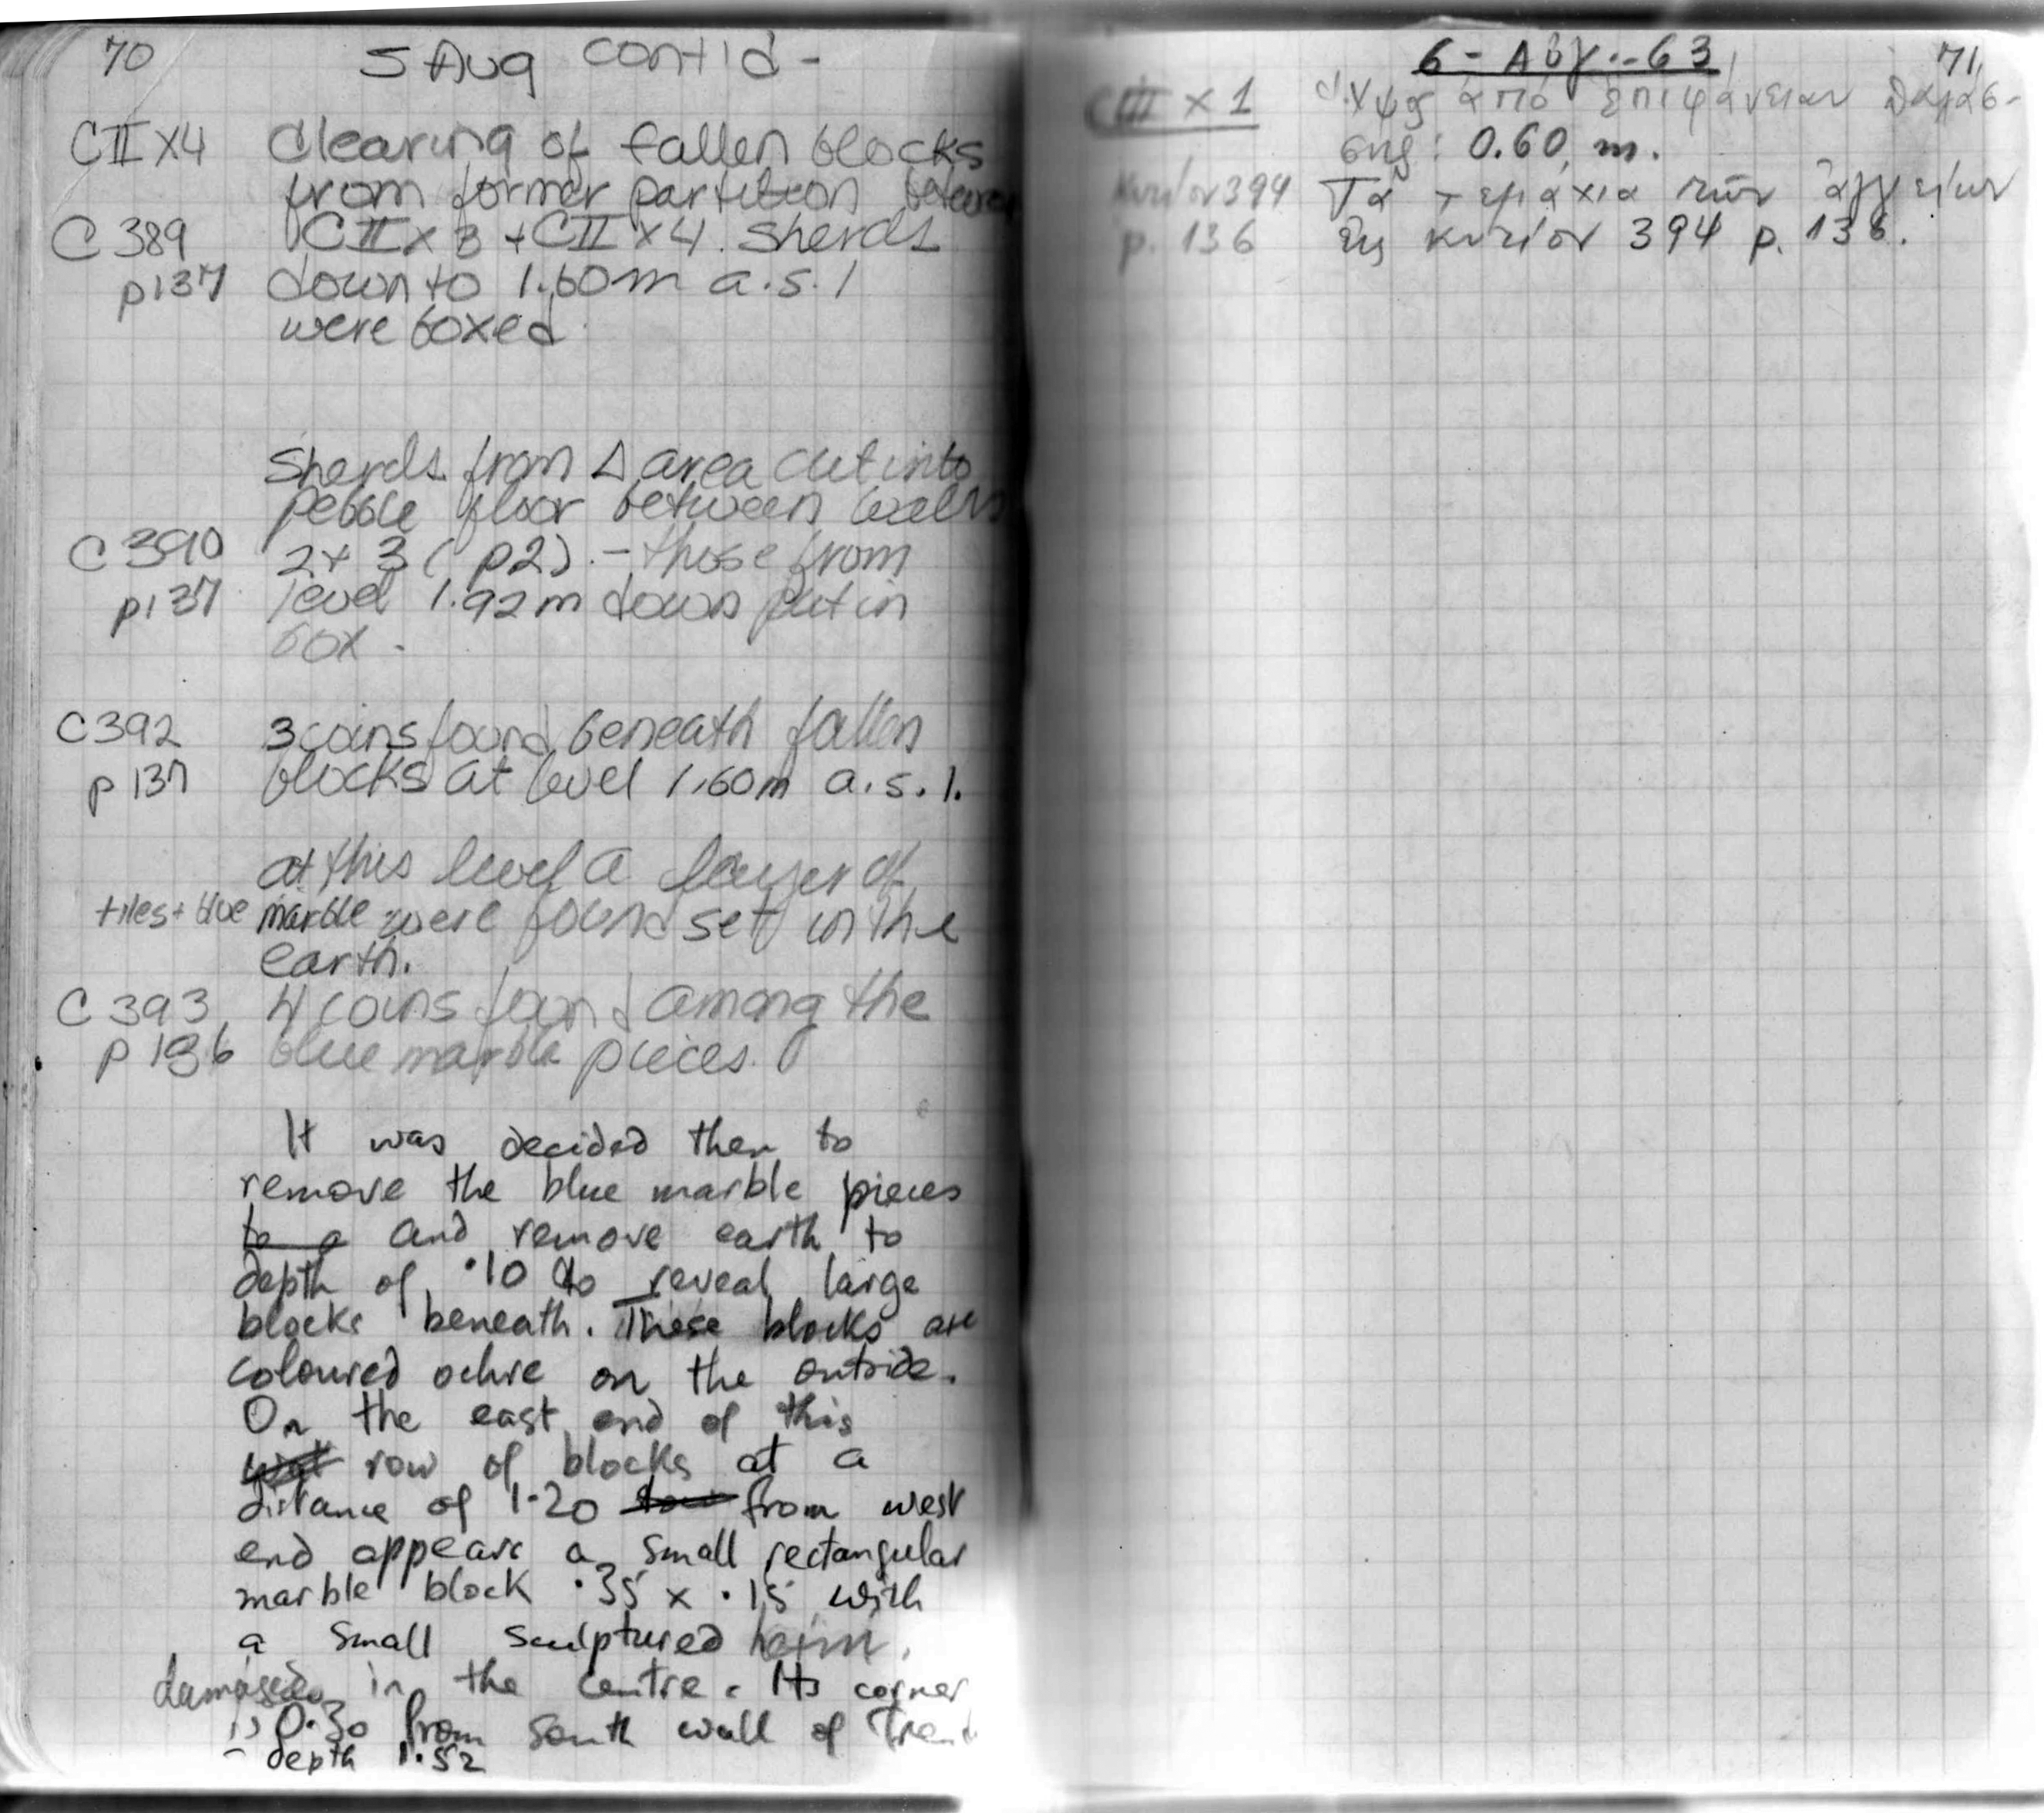 70
5 Aug cont'd -
CII X4 Clearing of fallen blocks
from former partition between
C 389 CII X 3 + CII X 4. Sherds
p137 down to 1.60m a.s.l
were boxed
Sherds from Δ area cut into
pebble floor between walls
C 390 2+3 (p2). - those from
p137 level 1.92m down put in
box.
C392 3 coins found beneath fallen
p 137 blocks at level 1.60m a.s.l.
at this level a layer of
tiles + blue marble were found set in the
earth.
C 393 4 coins found among the
p 136 blue marble pieces.
It was decided then to
remove the blue marble pieces
to a and remove earth to
depth of .10 to reveal large
blocks beneath. These blocks are
coloured ochre on the outside.
On the east end of this
row of blocks at a
distance of 1.20 from west
end appears a small rectangular
marble block .35 x .15 with
a small sculptured
damaged in the centre. Its corner
is 0.30 from South wall of
- depth 1.52
6 - Αὐγ. - 63
71
CIII X 1 ὕψος ἀπὸ ἐπιφάνειαν θαλάσ-
σης: 0.60 m.
Κυτίον 394 Τὰ τεμάχια τῶν ἀγγείων
p. 136 εἰς κυτίον 394 p. 136.